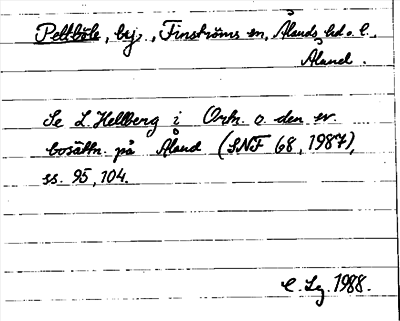 Peltböle, by, Finströms sn, Ålands hd o. l.,
Åland.
Se L Hellberg i Ortn. o. den sv.
bosättn. på Åland (SNF 68, 1987),
ss. 95, 104.
1988.